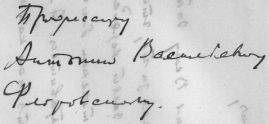 Профессору
Антонию Васильевичу
Флоровскому.